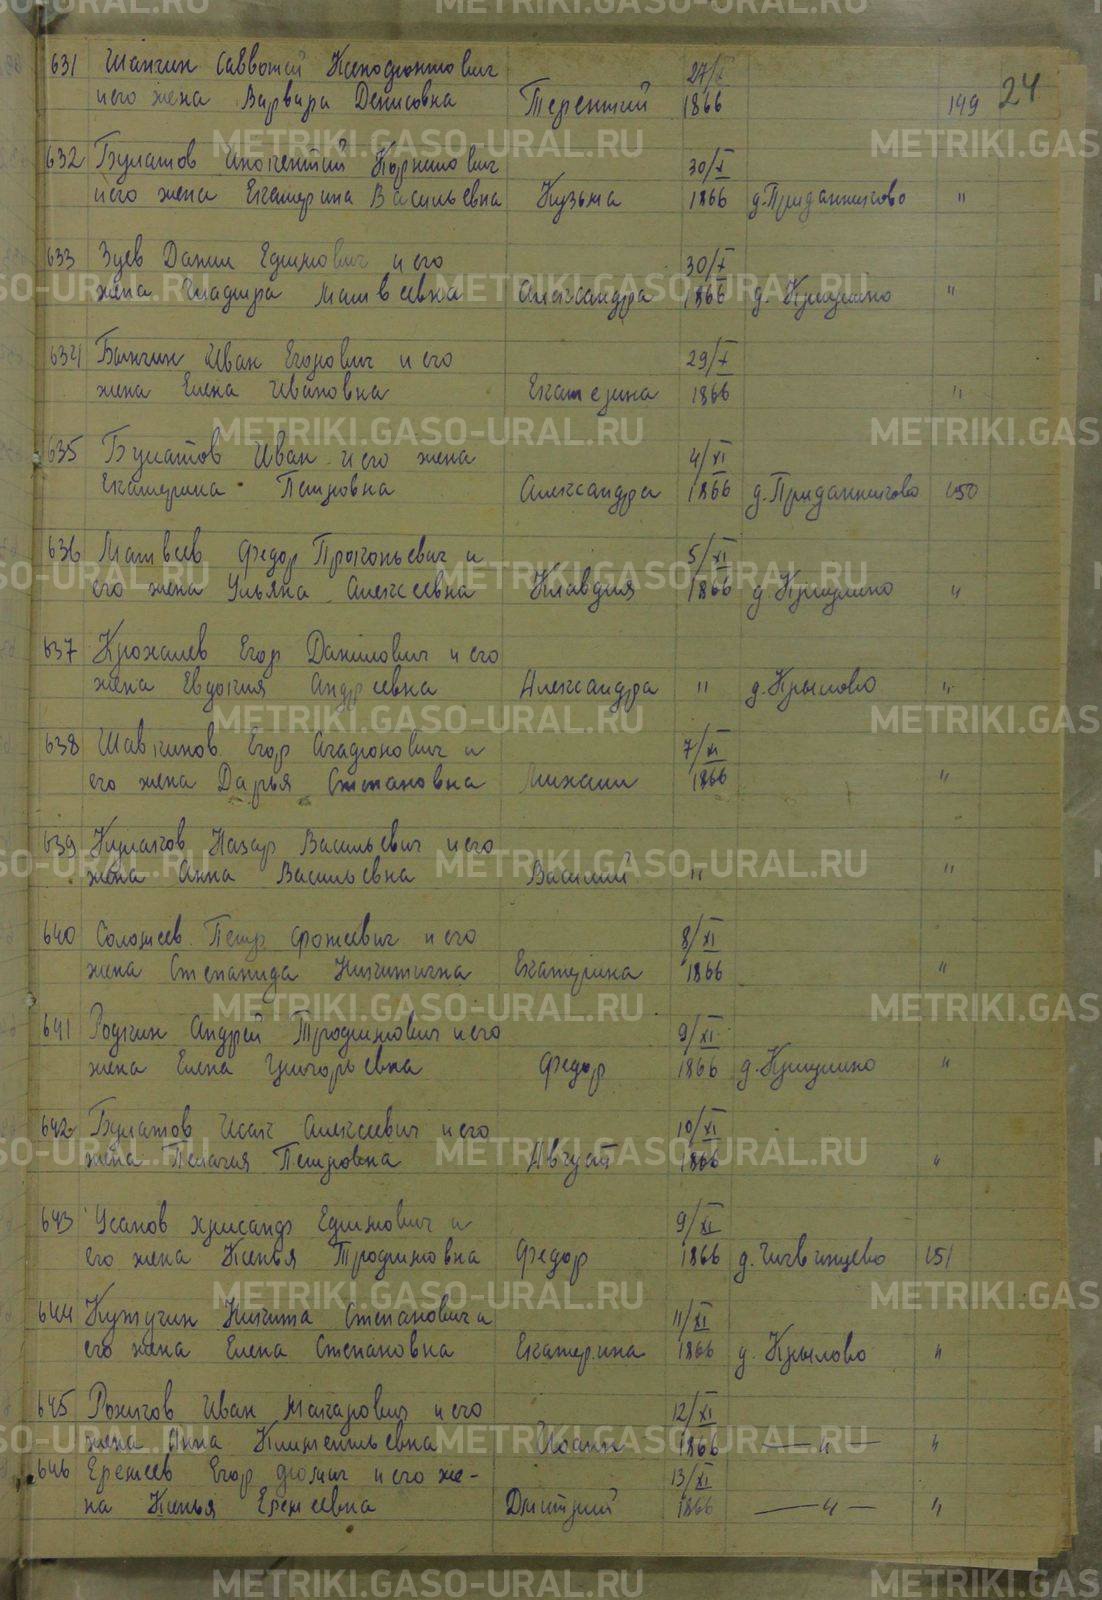 METRIKI.GASO-URAL.RU
24
631 Шангин Савватий Ксенофонтович 27/X
и его жена Варвара Денисовна Терентий 1866 149
632 Булатов Инокентий Корнилович 30/X
и его жена Екатерина Васильевна Кузьма 1866 д. Приданниково "
633 Зуев Данил Едимович и его 30/X
жена Матвеевна Александра 1866 д. Криулино "
634 Иван Егорович и его 29/X
жена Елена Ивановна Екатерина 1866 "
635 Булатов Иван и его жена 4/XI
Екатерина Петровна Александра 1866 д. Приданниково 150
636 Матвеев Федор Прокопьевич и 5/XI
его жена Ульяна Алексеевна Клавдия 1866 д. Криулино "
637 Крохалев Егор Данилович и его
жена Евдокия Андреевна Александра " д. Крылово "
638 Шавкунов Егор Агафонович и 7/XI
его жена Дарья Степановна Михаил 1866 "
639 Кулаков Назар Васильевич и его
жена Анна Васильевна Василий " "
640 Петр Фокеевич и его 8/XI
жена Степанида Никитична Екатерина 1866 "
641 Родкин Андрей Трофимович и его 9/XI
жена Елена Григорьевна Федор 1866 д. Криулино "
642 Булатов Исак Алексеевич и его 10/XI
жена Пелагия Петровна Август 1866 "
643 Усанов Хрисанф Едимович и 9/XI
его жена Ксенья Трофимовна Федор 1866 д. Чигвинцево 151
644 Никита Степанович и 11/XI
его жена Елена Степановна Екатерина 1866 д. Крылово "
645 Иван Макарович и его 12/XI
жена Анна Климентьевна Иоанн 1866 — " — "
646 Еремеев Егор и его же- 13/XI
на Ксенья Еремеевна Дмитрий 1866 — " — "